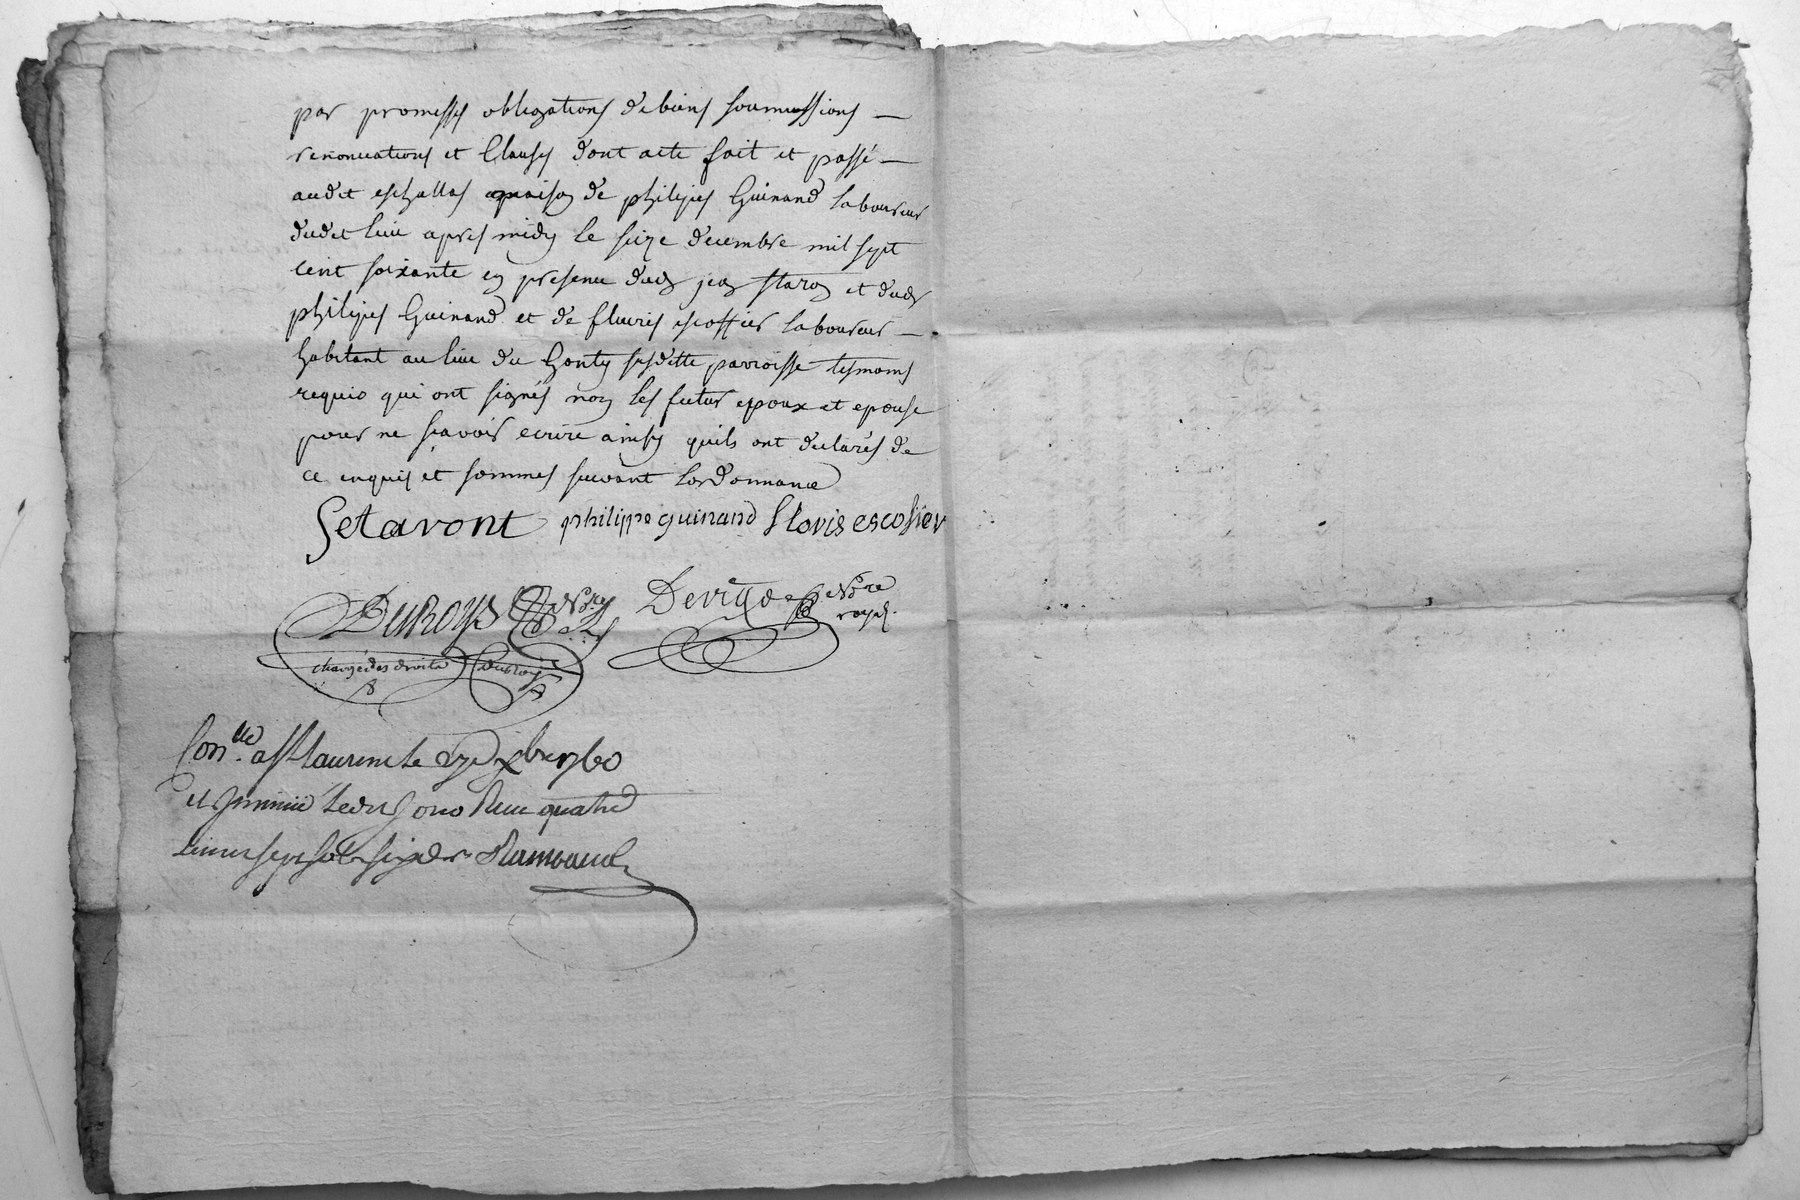 par promesses obligations de biens soumissions
renonciations et Clauses dont acte fait et passé
audit eschallas maison de philipes Guinand laboureur
dudit lieu apres midy le seize decembre mil sept
cent soixante en presence dud jean staron et dud
philipes Guinand et de fleuris escoffier laboureur
habitant au lieu du Gonty susditte parroisse tesmoins
requis qui ont signés non les futur epoux et epouse
pour ne sçavoir ecrire ainsy quils ont declarés de
ce enquis et sommes suivant lordonnance
Setavont philippe guinand flovis escofier
DuRoys Devige Nore
royal
chargé des droits Duroys
Con.lle a St Laurent le Xbre 1760
et insinué led jour Reçu quatre
livres sept sols six drs